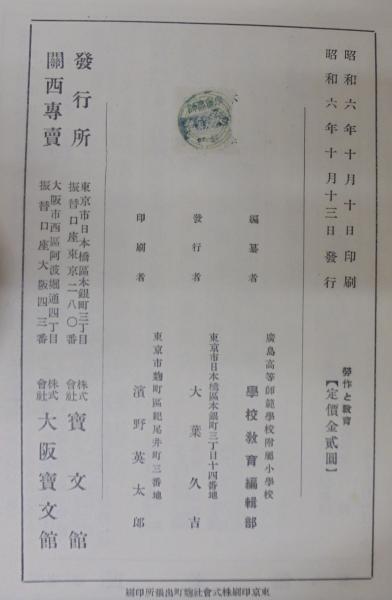 昭和六年十月十日印刷
昭和六年十月十三日發行
勞作と敎育
【定價金貳圓】
編纂者
廣島高等師範學校附屬小學校
學校敎育編輯部
發行者
東京市日本橋區本銀町三丁目十四番地
大葉久吉
印刷者
東京市麴町區紀尾井町三番地
濱野英太郎
發行所
東京市日本橋區本銀町三丁目
振替口座東京二八〇番
株式會社
寶文館
關西專賣
大阪市西區阿波堀通四丁目
振替口座大阪四三番
株式會社
大阪寶文館
東京印刷株式會社麴町出張所印刷